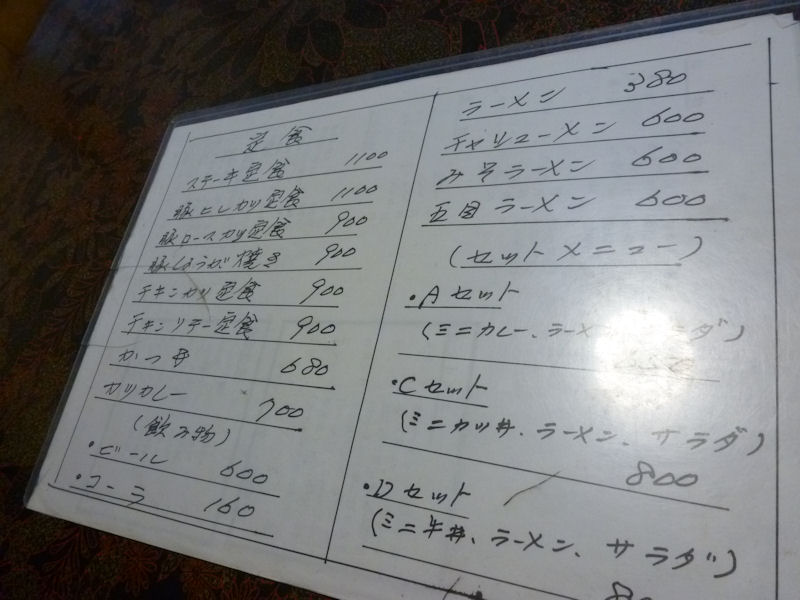 定食
ステーキ定食 1100
豚ヒレカツ定食 1100
豚ロースカツ定食 900
豚しょうが焼き 900
チキンカツ定食 900
チキンソテー定食 900
かつ丼 680
カツカレー 700
(飲み物)
・ビール 600
・コーラ 160
ラーメン 380
チャシューメン 600
みそラーメン 600
五目ラーメン 600
(セットメニュー)
・Aセット
(ミニカレー、ラーメン、サラダ)
・Cセット
(ミニカツ丼、ラーメン、サラダ)
800
・Dセット
(ミニ牛丼、ラーメン、サラダ)